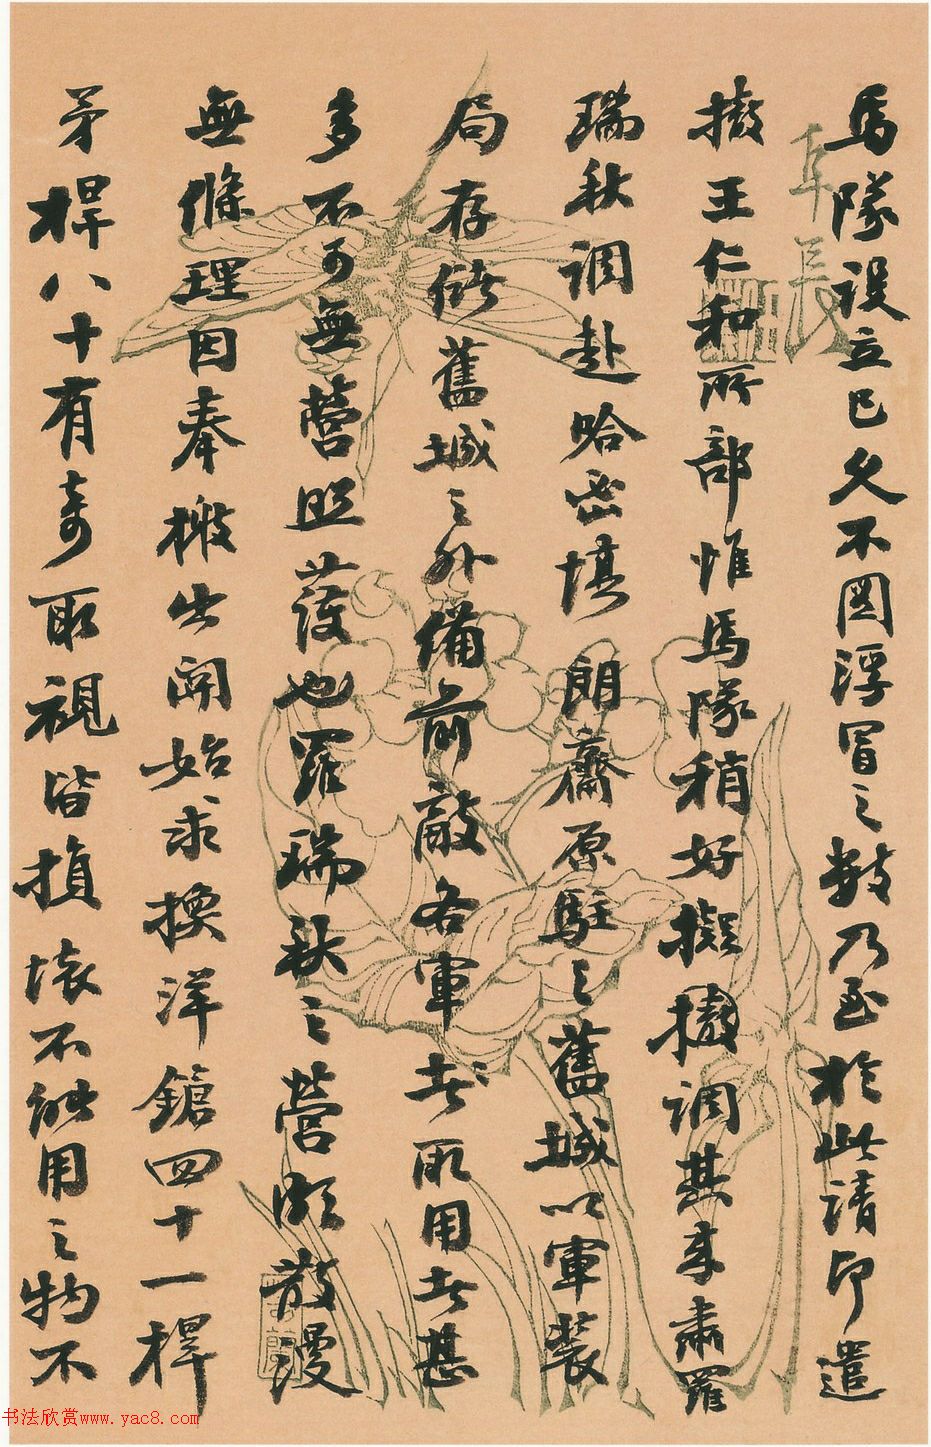 馬隊設立已久不圖浮冒之數乃至於此請即遣
撤王仁和所部惟馬隊稍好擬撤調其來肅羅
瑞秋調赴哈密填朗齋原駐之舊城以軍裝
局存儲舊城之外備前敵各軍者所用者甚
多不可無營照護也羅瑞秋之營頗散漫
無條理因奉檄出關始求換洋鎗四十一桿
矛桿八十有奇取視皆損壞不能用之物不
書法欣赏www.yac8.com